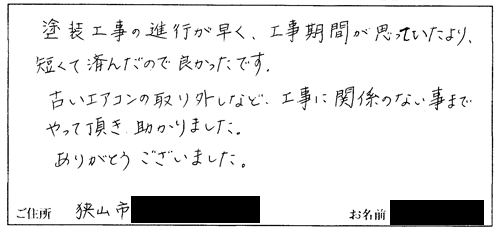 塗装工事の進行が早く、工事期間が思っていたより、
短くて済んだので良かったです.
古いエアコンの取り外しなど、工事に関係のない事まで
やって頂き助かりました。
ありがとうございました。
ご住所 狭山市 お名前